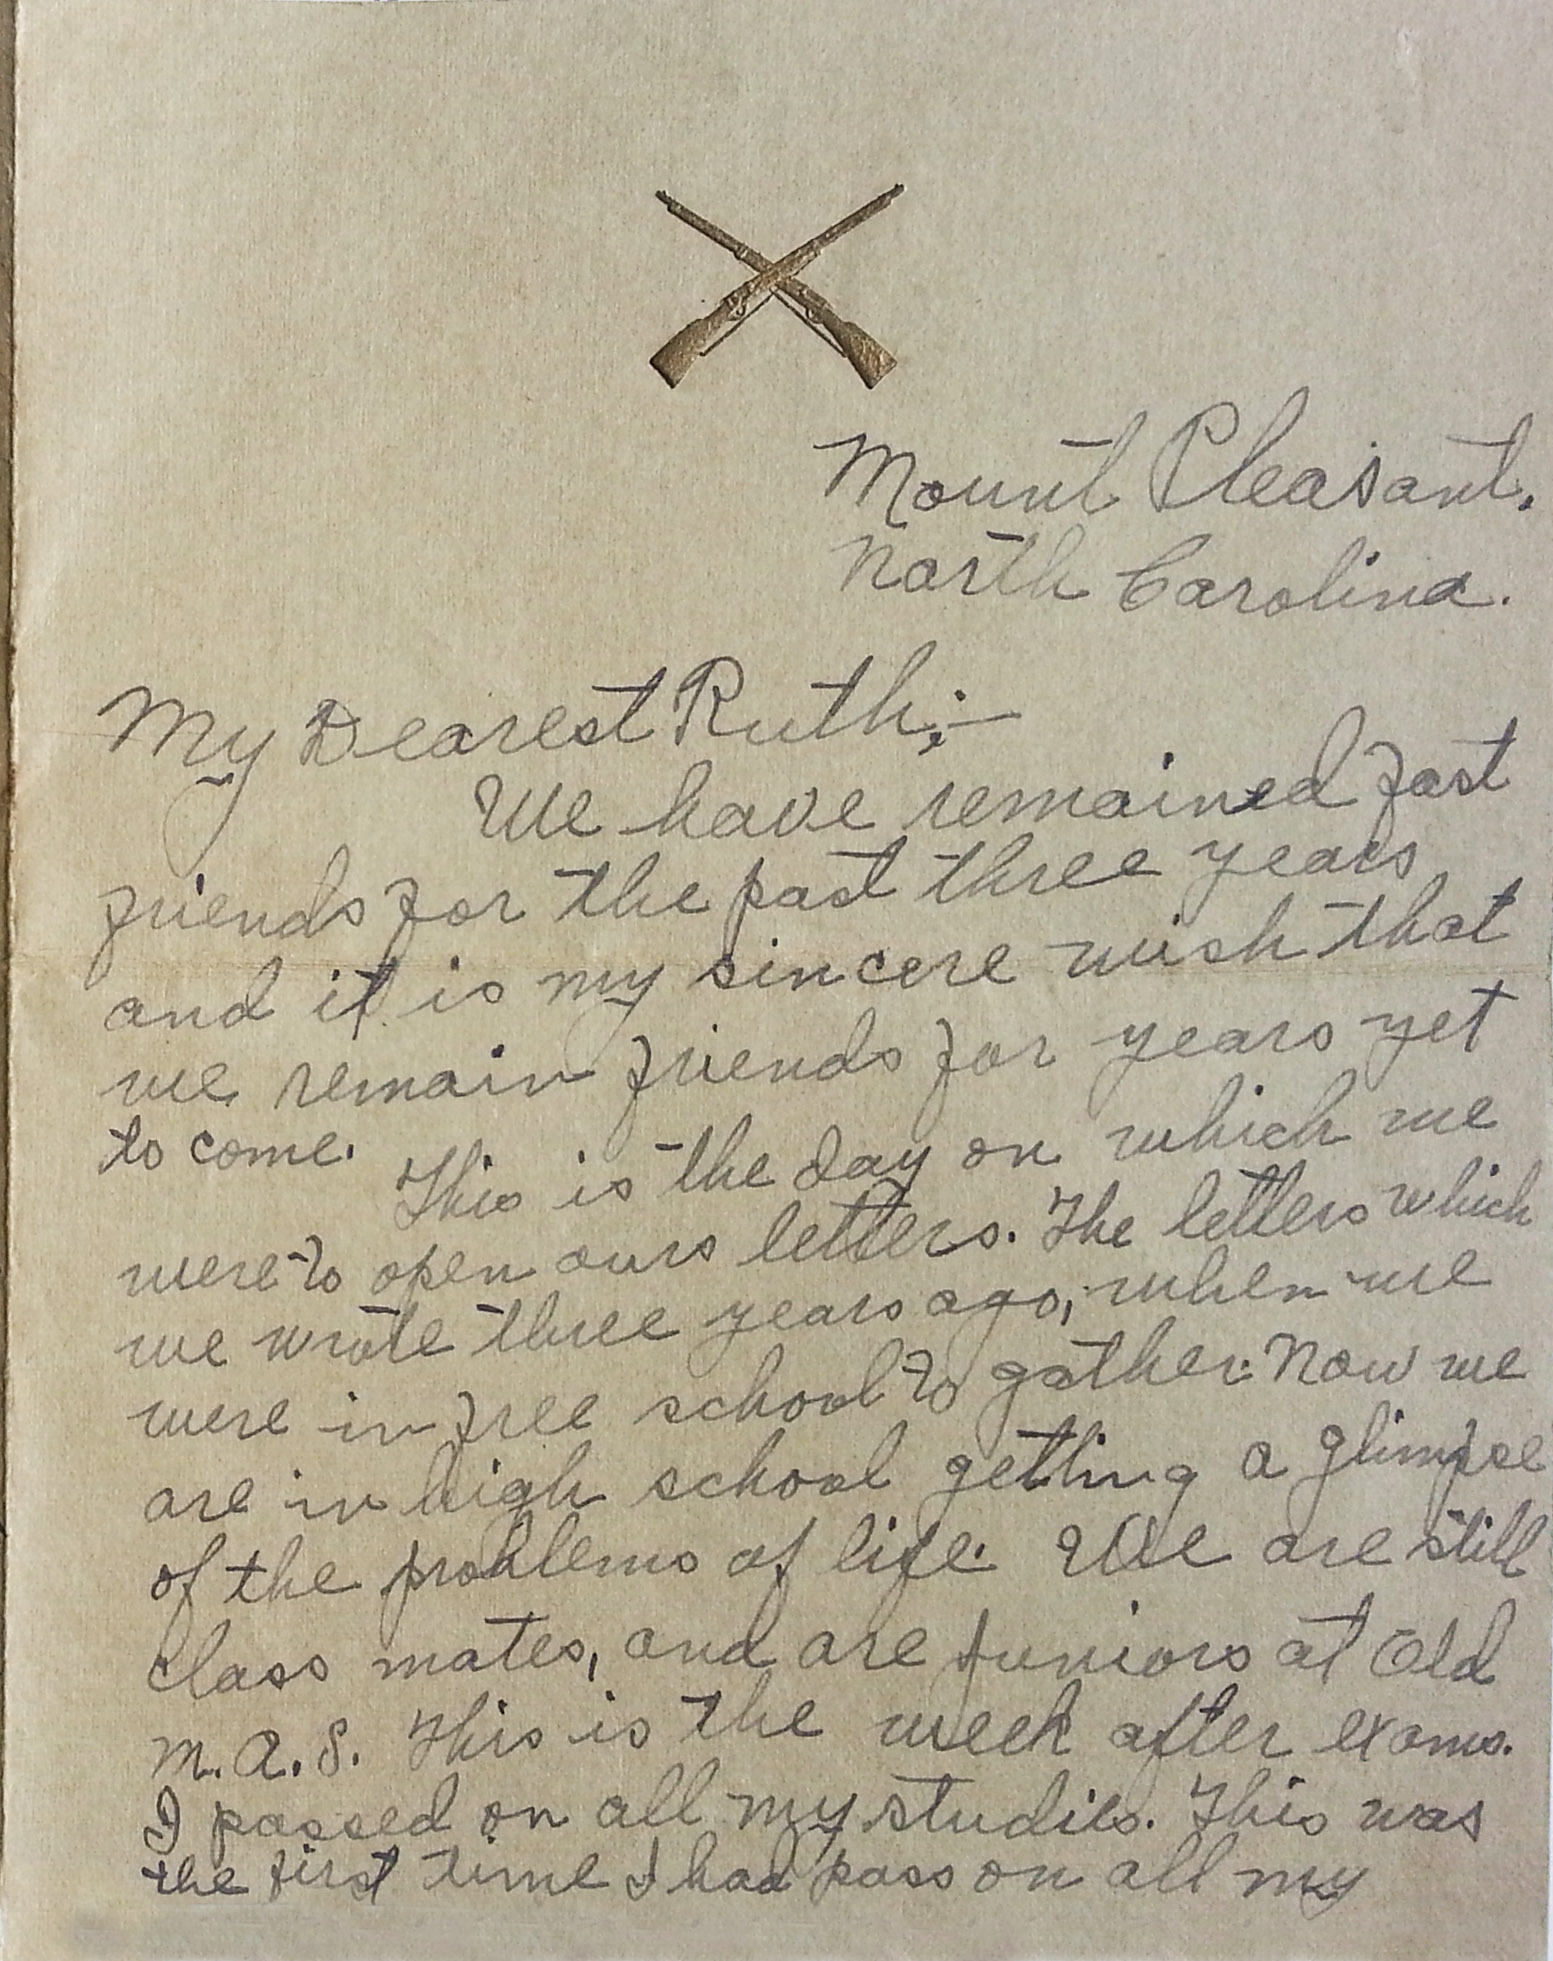 Mount Pleasant,
North Carolina.
My Dearest Ruth;—
We have remained fast
friends for the past three years
and it is my sincere wish that
we remain friends for years yet
to come.
This is the day on which we
were to open ours letters. The letters which
we wrote three years ago, when we
were in free school to gather. Now we
are in high school getting a glimpse
of the problems of life. We are still
class mates, and are Juniors at Old
M.A.S. This is the week after exams.
I passed on all my studies. This was
the first time I had pass on all my